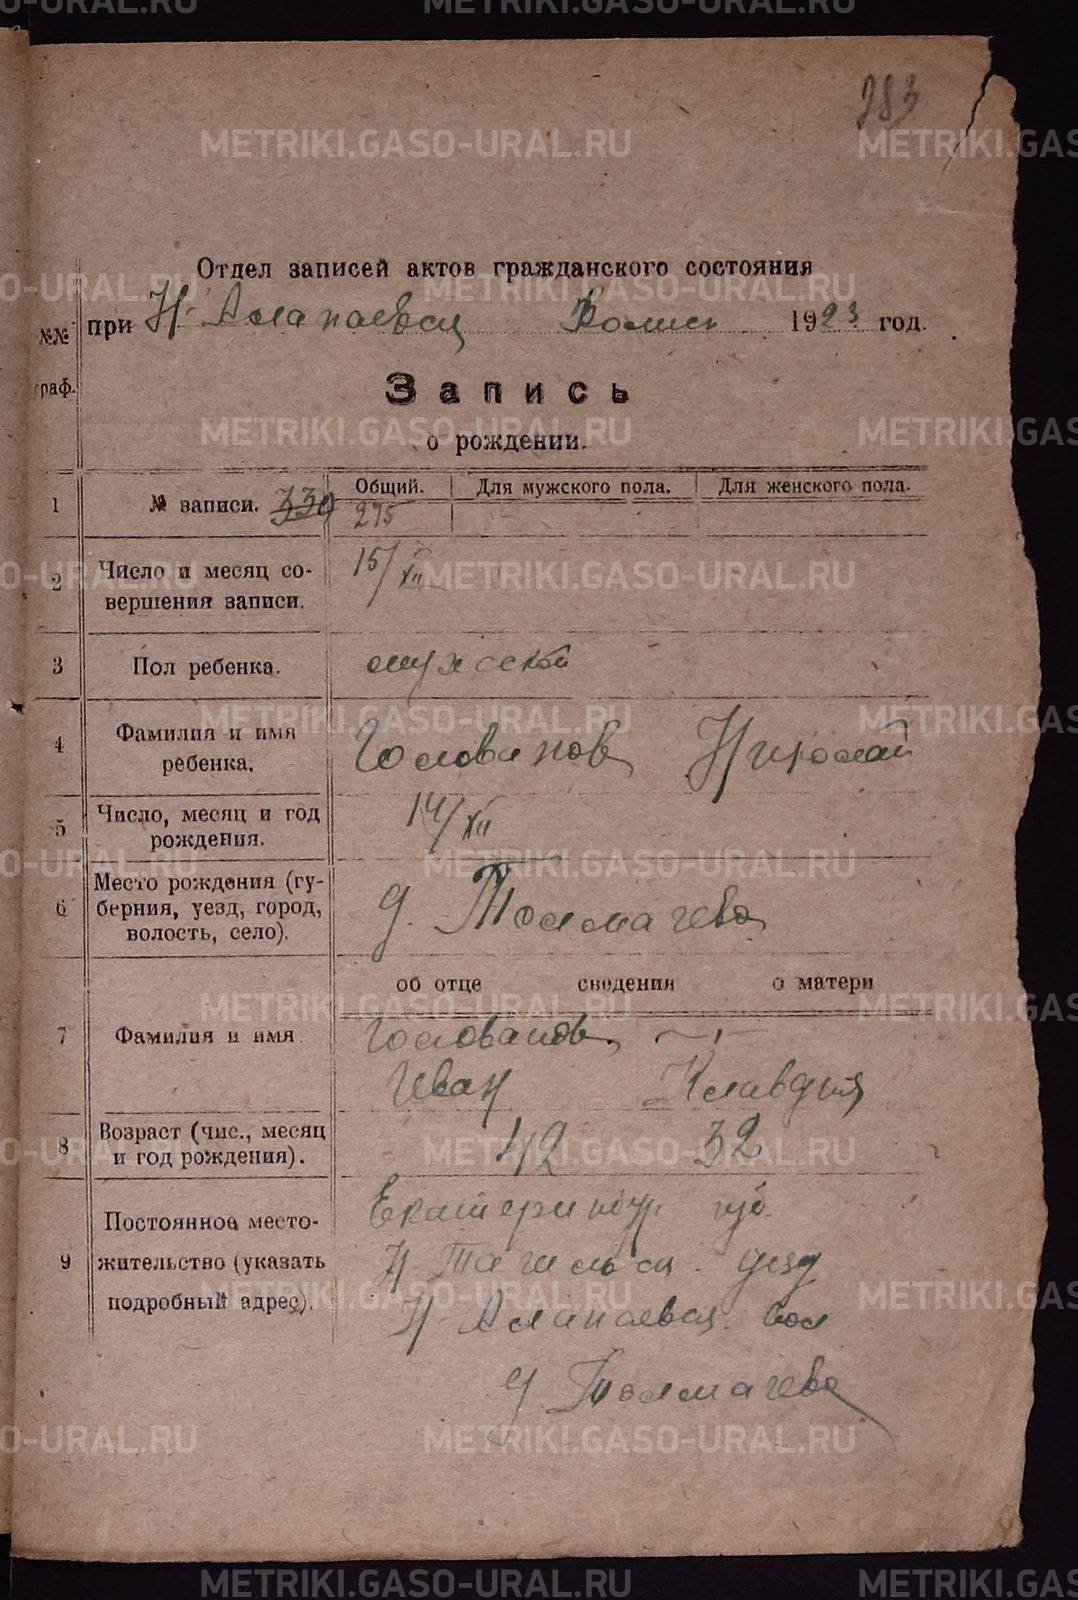 283
Отдел записей актов гражданского состояния
при Н-Алапаевск Волисп 1923 год.
№№ граф.
Запись
о рождении.
1 № записи. 330 Общий. Для мужского пола. Для женского пола.
275
2 Число и месяц со-
вершения записи. 15/XII
3 Пол ребенка. мужской
4 Фамилия и имя
ребенка. Голованов Николай
5 Число, месяц и год
рождения. 14/XII
6 Место рождения (гу-
берния, уезд, город,
волость, село). д. Толмачева
об отце сведения о матери
7 Фамилия и имя Голованов — ı —
Иван Клавдия
8 Возраст (чис., месяц
и год рождения). 42 32
9 Постоянное место-
жительство (указать
подробный адрес). Екатеринбур. губ.
Н Тагильск. уезд
Н-Алапаевск. вол
д Толмачева
METRIKI.GASO-URAL.RU